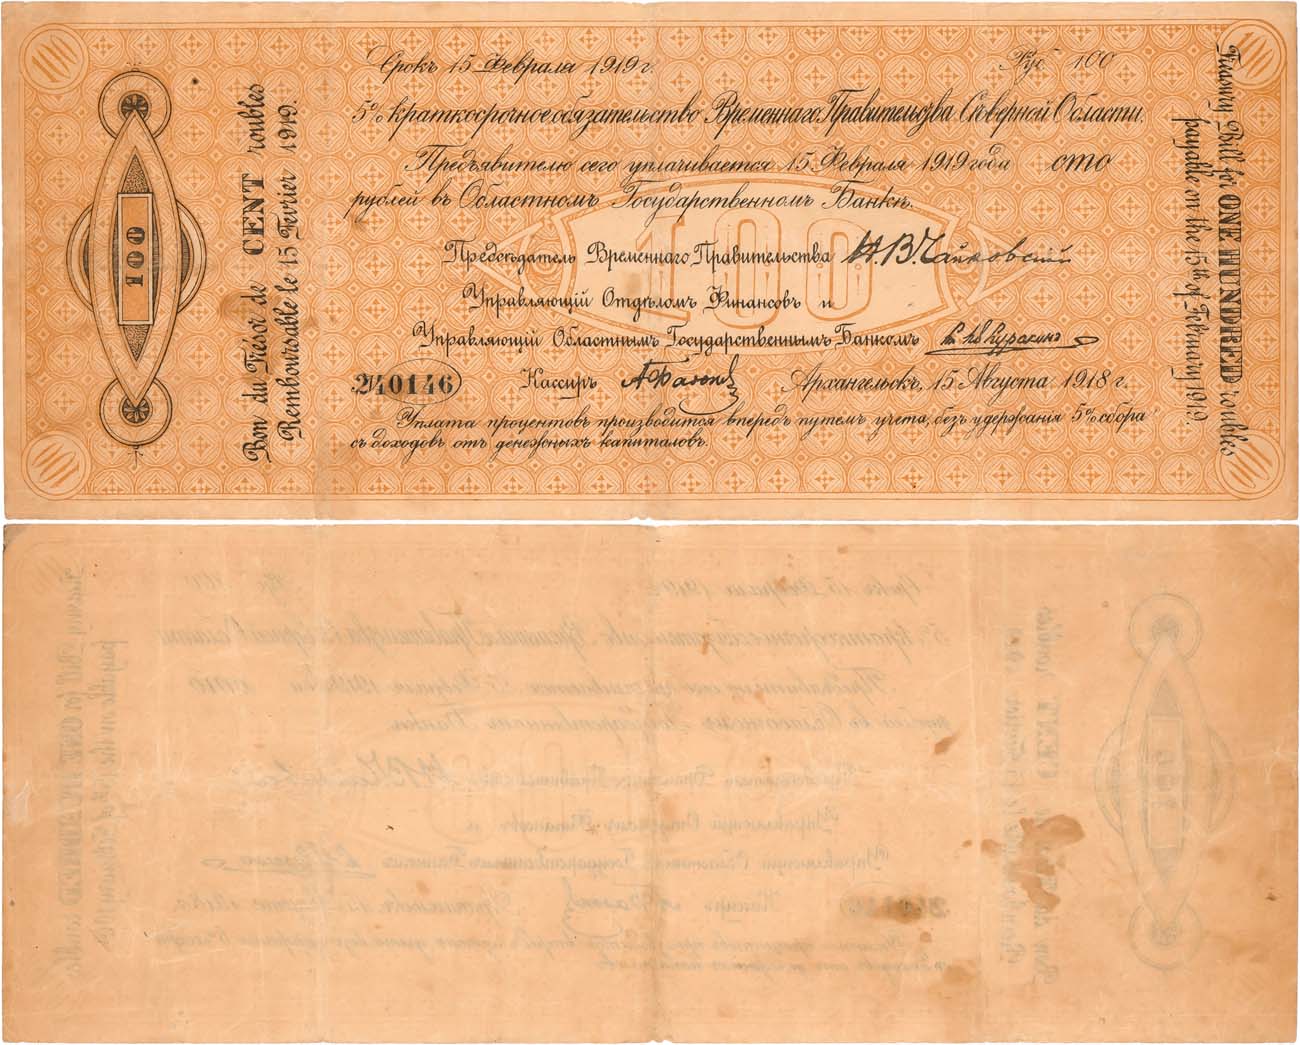 Срокъ 15 Февраля 1919 г. Руб. 100
5% краткосрочное обязательство Временнаго Правительства Сѣверной Области.
Предъявителю сего уплачивается 15 Февраля 1919 года сто
рублей въ Областномъ Государственномъ Банкѣ.
100
Предсѣдатель Временнаго Правительства Н.В.Чайковскій
Управляющій Отдѣломъ Финансовъ и
Управляющій Областнымъ Государственнымъ Банкомъ
240146 Кассиръ Архангельскъ, 15 Августа 1918 г.
Уплата процентовъ производится впередъ путемъ учета, безъ удержанія 5% сбора
съ доходовъ отъ денежныхъ капиталовъ.
100
Bon du Trésor de CENT roubles
Remboursable le 15 Fevrier 1919.
Treasury Bill for ONE HUNDRED roubles
payable on the 15th of February 1919.
100
100
100
100